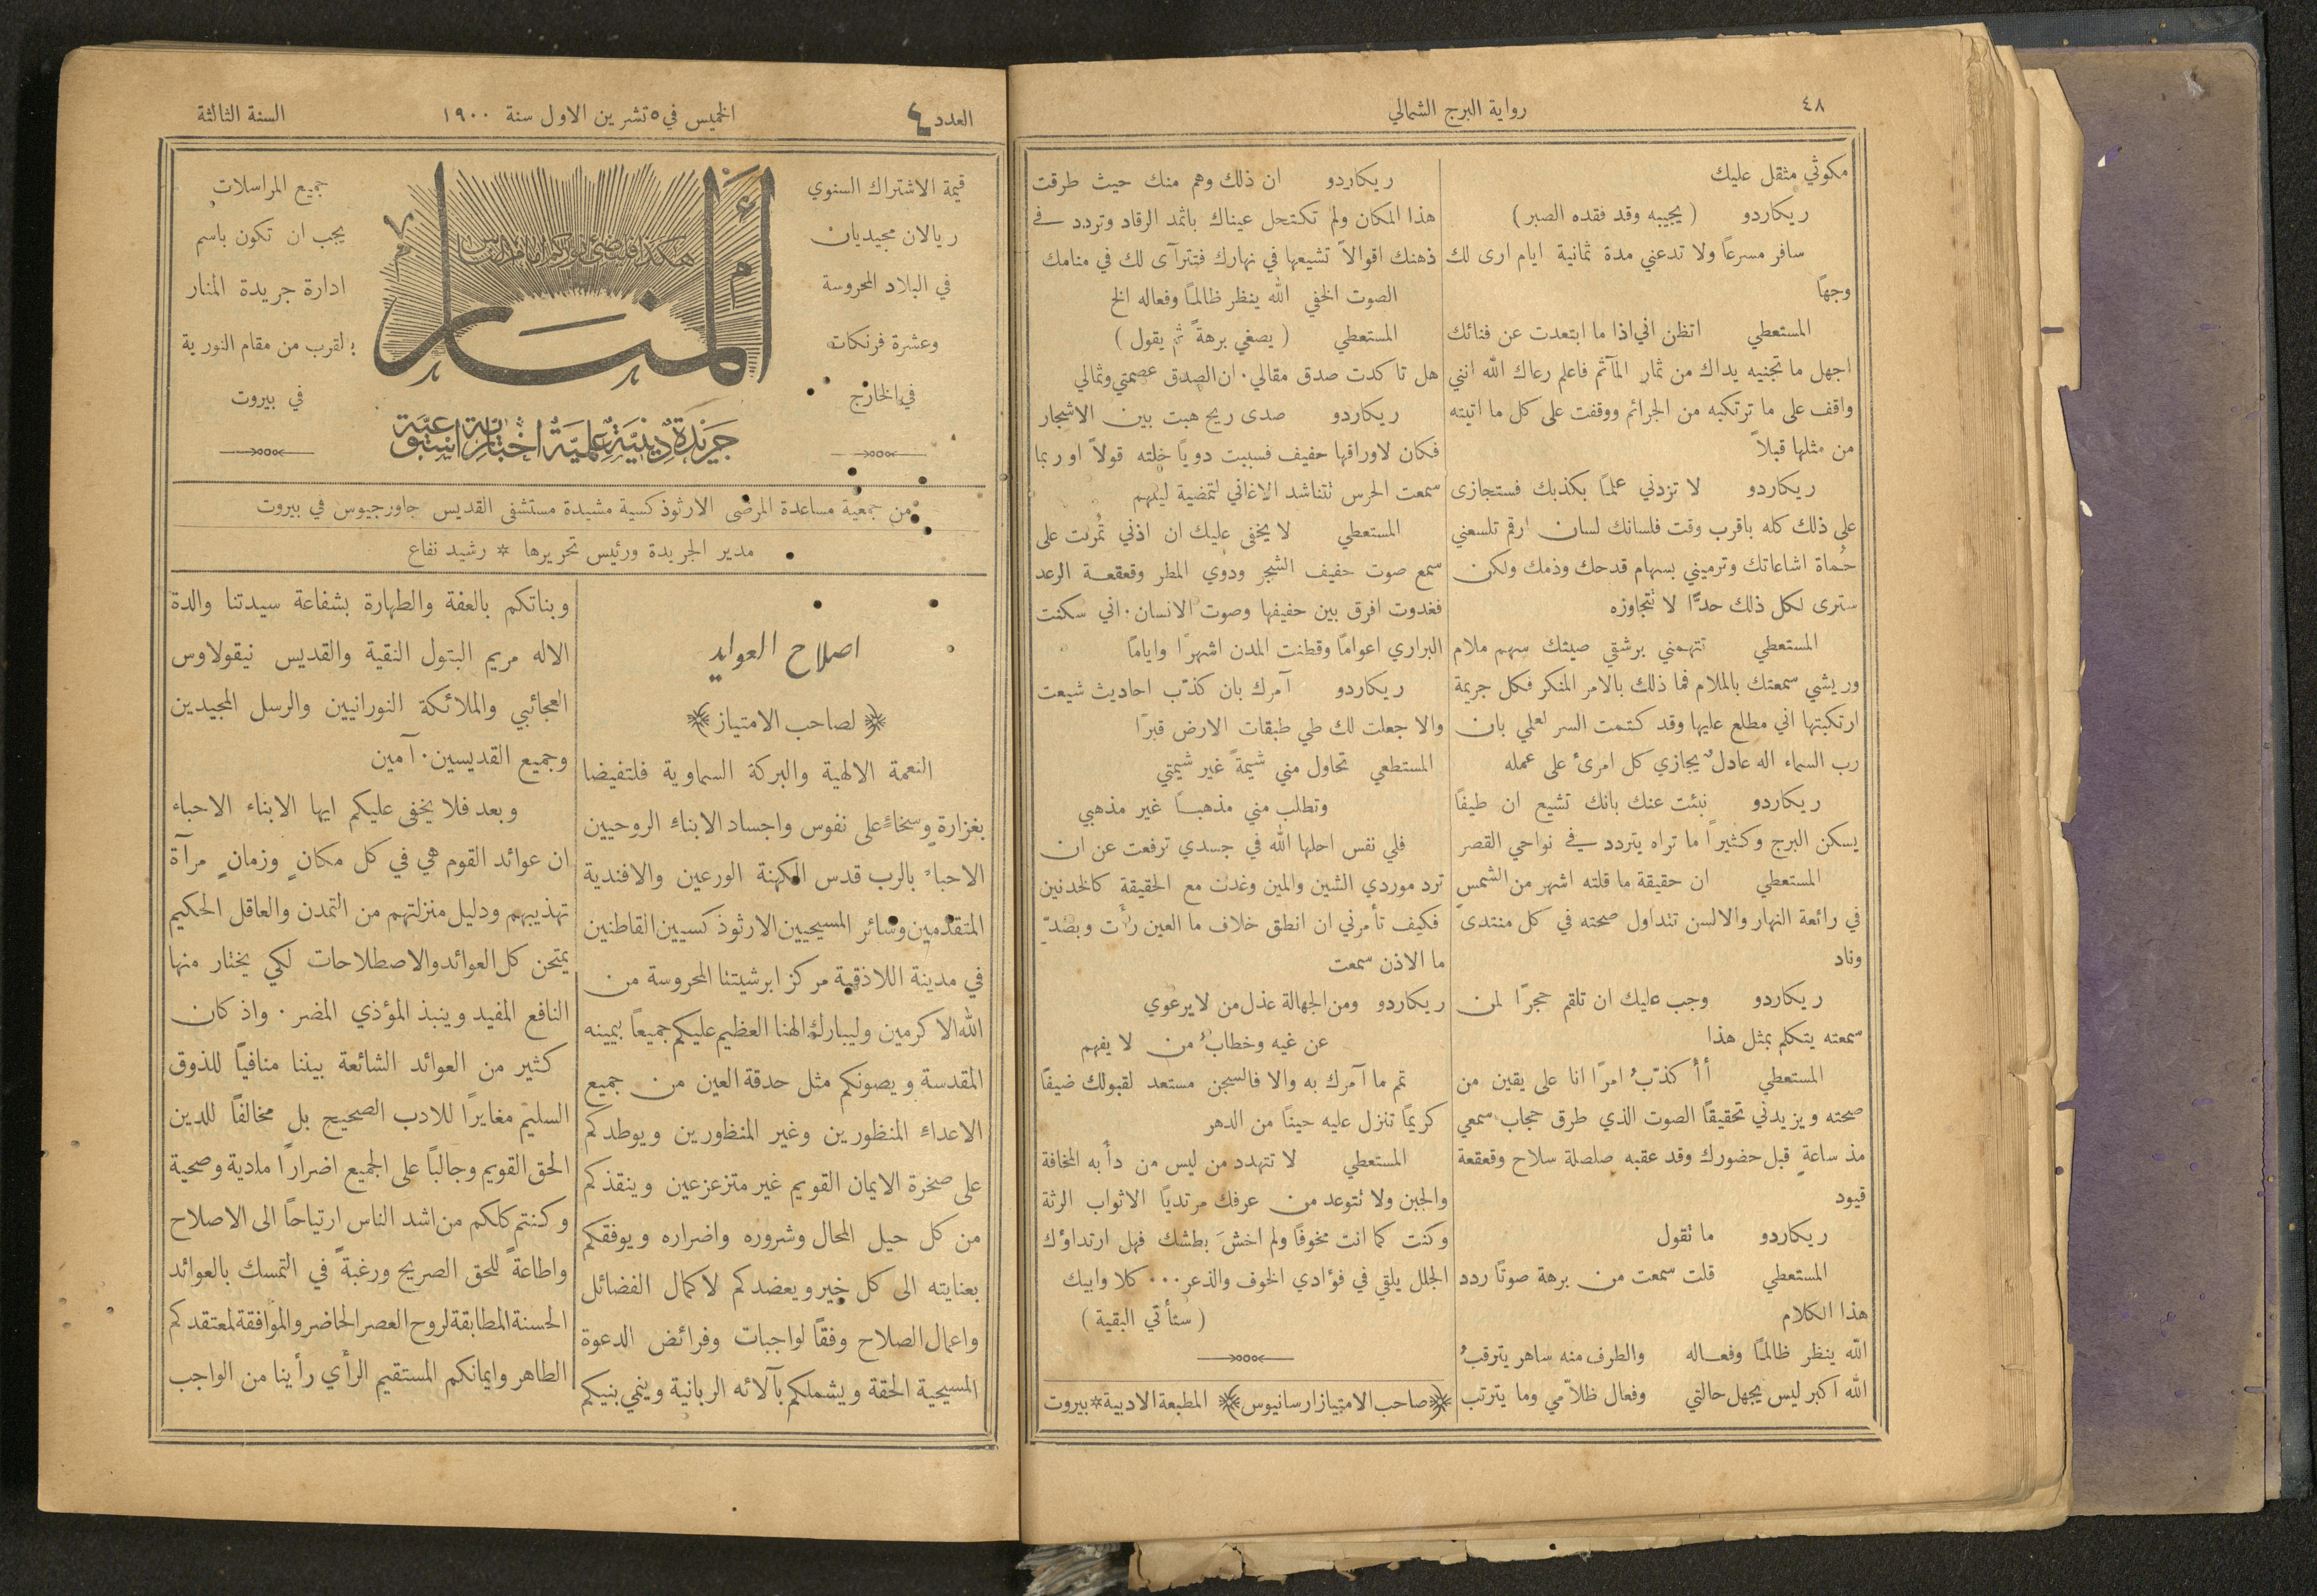 ٤٨
رواية البرج الشمالي
مكوثي مثقل عليك
ريكاردو (يجيبه وقد فقده الصبر)
سافر مسرعاً ولا تدعني مدة ثمانية ايام ارى لك
وجهاً
المستعطي اتظن اني اذا ما ابتعدت عن فنائك
اجهل ما تجنيه يداك من ثمار المآثم فاعلم رعاك الله انني
واقف على ما ترتكبه من الجرائم ووقفت على كل ما اتيته
من مثلها قبلاً
ريكاردو لا تزدني علمًا بكذبك فستجازى
على ذلك كله باقرب وقت فلسانك لسان ارقم تلسعني
حُماة اشاعاتك وترميني بسهام قدحك وذمك ولكن
سترى لكل ذلك حدًّا لا تتجاوزه
المستعطي تتهمني برشقي صيتك سهم ملام
وريشي سمعتك بالملام فما ذلك بالامر المنكر فكل جريمة
ارتكبتها اني مطلع عليها وقد كتمت السر لعلمي بان
رب السماء اله عادلٌ يجازي كل امرئ على عمله
ريكاردو نبئت عنك بانك تشيع ان طيفًا
يسكن البرج وكثيرًا ما تراه يتردد في نواحي القصر
المستعطي ان حقيقة ما قلته اشهر من الشمس
في رائعة النهار والالسن تتداول صحته في كل منتدىً
وناد
ريكاردو وجب عليك ان تلقم حجرًا لمن
سمعته يتكلم بمثل هذا
المستعطي أأكذّبُ امرًا انا على يقين من
صحته ويزيدني تحقيقًا الصوت الذي طرق حجاب سمعي
مذ ساعةٍ قبل حضورك وقد عقبه صلصلة سلاح وقعقعة
قيود
ريكاردو ما تقول
المستعطي قلت سمعت من برهة صوتًا ردد
هذا الكلام
الله ينظر ظالمًا وفعاله والطرف منه ساهر يترقبُ
الله اكبر ليس يجهل حالتي وفعال ظلاّمي وما يترتب
ريكاردو ان ذلك وهم منك حيث طرقت
هذا المكان ولم تكتحل عيناك باثمد الرقاد وتردد في
ذهنك اقوالاً تشيعها في نهارك فتترآى لك في منامك
الصوت الخفي الله ينظر ظالمًا وفعاله الخ
المستعطي (يصغي برهةً ثم يقول)
هل تاكدت صدق مقالي. ان الصدق عصمتي وثمالي
ريكاردو صدى ريح هبت بين الاشجار
فكان لاوراقها حفيف فسببت دويًا خلته قولاً او ربما
سمعت الحرس تتناشد الاغاني لتمضية ليلهم
المستعطي لا يخفى عليك ان اذني تمُرنت على
سمع صوت حفيف الشجر ودوي المطر وقعقعة الرعد
فغدوت افرق بين حفيفها وصوت الانسان. اني سكنت
البراري اعوامًا وقطنت المدن اشهرًا وايامًا
ريكاردو آمرك بان كذب احاديث شيعت
والا جعلت لك طي طبقات الارض قبرًا
المستطعي تحاول مني شيمةً غير شيمتي
وتطلب مني مذهبًا غير مذهبي
فلي نفس احلها الله في جسدي ترفعت عن ان
ترد موردي الشين والمين وغدت مع الحقيقة كالخدنين
فكيف تأمرني ان انطق خلاف ما العين رأت وبضدّ
ما الاذن سمعت
ريكاردو ومن الجهالة عذل من لا يرعوي
عن غيه وخطابُ من لا يفهم
تم ما آمرك به والا فالسجن مستعد لقبولك ضيفًا
كريمًا تنزل عليه حينًا من الدهر
المستعطي لا تتهدد من ليس من دأبه المخافة
والجبن ولا تتوعد من عرفك مرتديًا الاثواب الرثة
وكنت كما انت مخوفًا ولم اخشَ بطشك فهل ارتداؤك
الجلل يلقي في فؤادي الخوف والذعر... كلا وابيك
(ستأتي البقية)
صاحب الامتياز ارسانيوس المطبعة الادبية * بيروت
العدد ٤
الخميس في ٥ تشرين الاول سنة ١٩٠٠
السنة الثالثة
قيمة الاشتراك السنوي
ريالان مجيديان
في البلاد المحروسة
وعشرة فرنكات
في الخارج
هكذا فليضئ نوركم امام الناس
المنار
جريدة دينية علمية اخبارية اسبوعية
جميع المراسلات
يجب ان تكون باسم
ادارة جريدة المنار
بالقرب من مقام النورية
في بيروت
من جمعية مساعدة المرضى الارثوذكسية مشيدة مستشفى القديس جاورجيوس في بيروت
مدير الجريدة ورئيس تحريرها * رشيد نفاع
اصلاح العوايد
لصاحب الامتياز
النعمة الالهية والبركة السماوية فلتفيضا
بغزارةٍ وسخاءٍ على نفوس واجساد الابناء الروحيين
الاحباء بالرب قدس الكهنة الورعين والافندية
المتقدمين وسائر المسيحيين الارثوذكسيين القاطنين
في مدينة اللاذقية مركز ابرشيتنا المحروسة من
الله الاكرمين وليبارك الهنا العظيم عليكم جميعًا بيمينه
المقدسة ويصونكم مثل حدقة العين من جميع
الاعداء المنظورين وغير المنظورين ويوطدكم
على صخرة الايمان القويم غير متزعزعين وينقذكم
من كل حيل المحال وشروره واضراره ويوفقكم
بعنايته الى كل خير ويعضدكم لاكمال الفضائل
واعمال الصلاح وفقًا لواجبات وفرائض الدعوة
المسيحية الحقة ويشملكم بآلائه الربانية وينمي بنيكم
وبناتكم بالعفة والطهارة بشفاعة سيدتنا والدة
الاله مريم البتول النقية والقديس نيقولاوس
العجائبي والملائكة النورانيين والرسل المجيدين
وجميع القديسين. آمين
وبعد فلا يخفى عليكم ايها الابناء الاحباء
ان عوائد القوم هي في كل مكانٍ وزمانٍ مرآة
تهذيبهم ودليل منزلتهم من التمدن والعاقل الحكيم
يمتحن كل العوائد والاصطلاحات لكي يختار منها
النافع المفيد وينبذ المؤذي المضر. واذ كان
كثير من العوائد الشائعة بيننا منافيًا للذوق
السليم مغايرًا للادب الصحيح بل مخالفًا للدين
الحق القويم وجالبًا على الجميع اضرارًا مادية وصحية
وكنتم كلكم من اشد الناس ارتياحًا الى الاصلاح
واطاعةً للحق الصريح ورغبةً في التمسك بالعوائد
الحسنة المطابقة لروح العصر الحاضر والموافقة لمعتقدكم
الطاهر وايمانكم المستقيم الرأي رأينا من الواجب